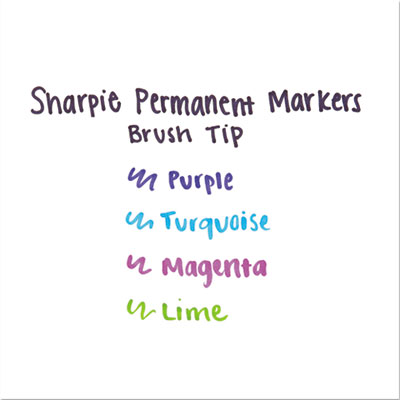 Sharpie Permanent Markers
Brush Tip
Purple
Turquoise
Magenta
Lime